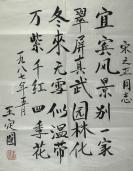 宋之王同志
宜宾风景别一家
翠屏真武园林化
冬来无雪似温带
万紫千红四季花
一九八七年五月
王定國